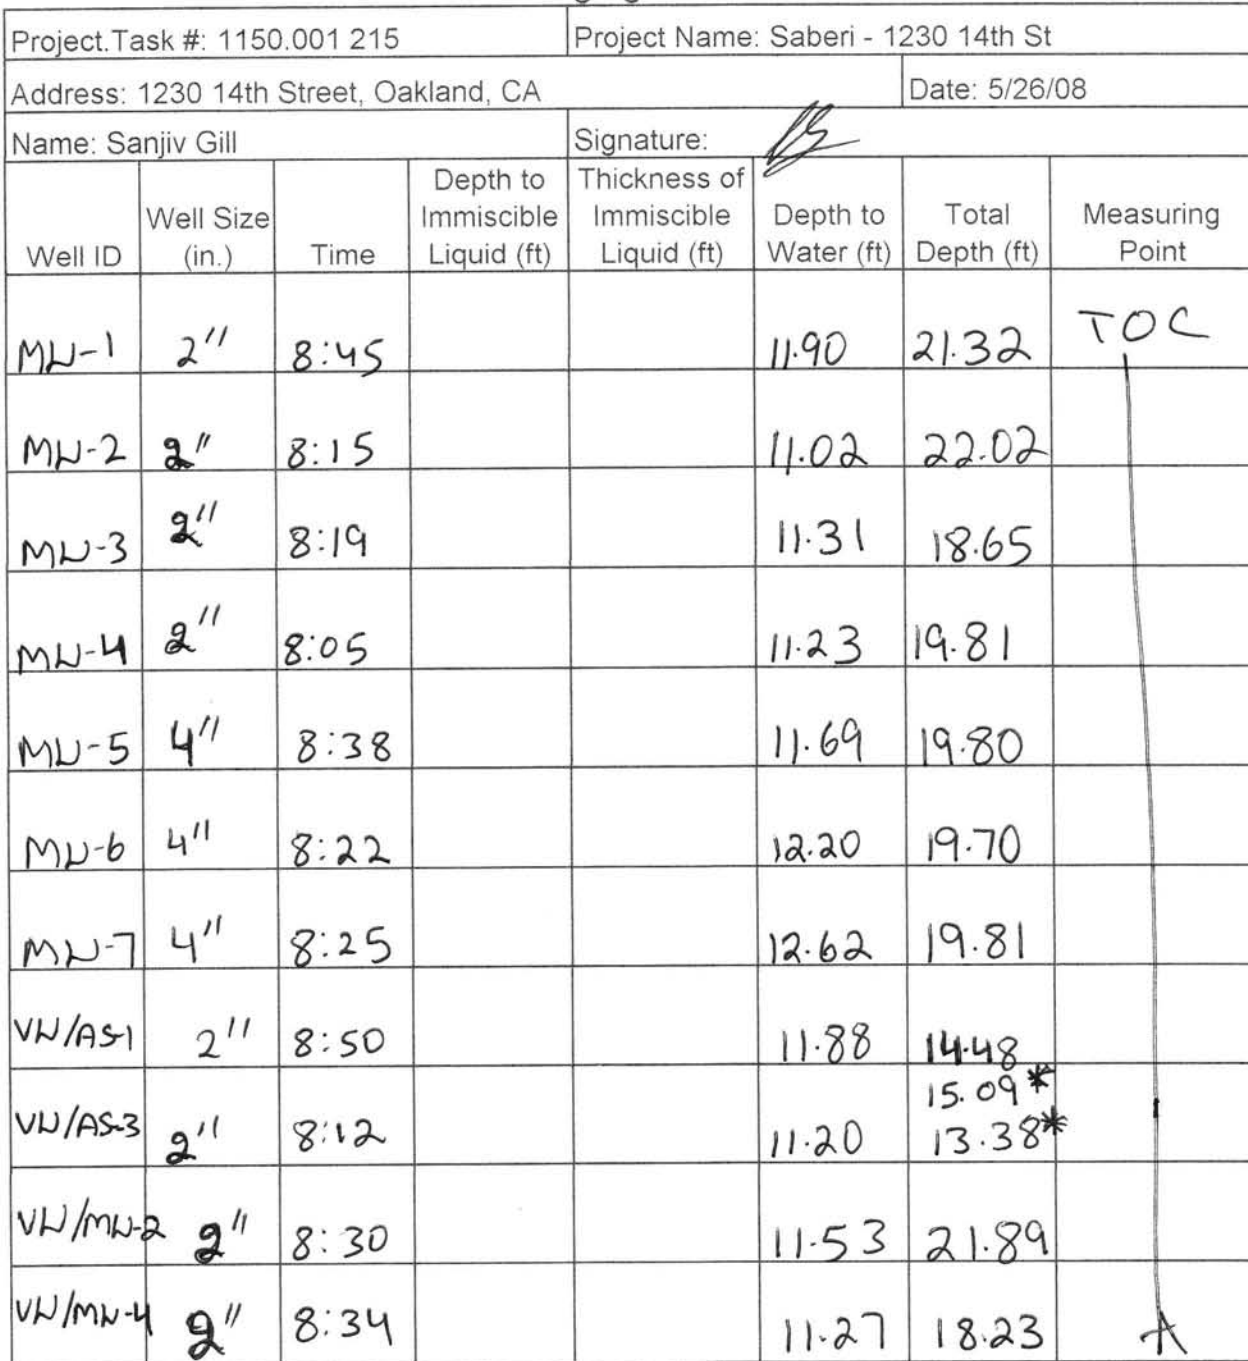 Project.Task #: 1150.001 215 Project Name: Saberi - 1230 14th St
Address: 1230 14th Street, Oakland, CA Date: 5/26/08
Name: Sanjiv Gill Signature:
Well ID Well Size (in.) Time Depth to Immiscible Liquid (ft) Thickness of Immiscible Liquid (ft) Depth to Water (ft) Total Depth (ft) Measuring Point
MW-1 2" 8:45 11.90 21.32 TOC
MW-2 2" 8:15 11.02 22.02
MW-3 2" 8:19 11.31 18.65
MW-4 2" 8:05 11.23 19.81
MW-5 4" 8:38 11.69 19.80
MW-6 4" 8:22 12.20 19.70
MW-7 4" 8:25 12.62 19.81
VW/AS-1 2" 8:50 11.88 14.48
15.09*
VW/AS-3 2" 8:12 11.20 13.38*
VW/MW-2 2" 8:30 11.53 21.89
VW/MW-4 2" 8:34 11.27 18.23